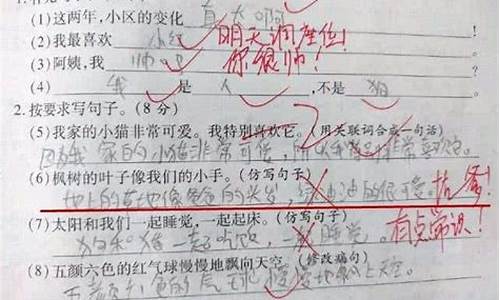 (1)这两年,小区的变化 真大啊
(2)我最喜欢 小红 明天调座位!
(3)阿姨,我 帅吗 你很帅!
(4) 我 是 人 ,不是 狗
2.按要求写句子。(8 分)
(5)我家的小猫非常可爱。我特别喜欢它。(用关联词合成一句话)
因为我家的小猫非常可爱,所以我 非常喜欢它。
(6)枫树的叶子像我们的小手。(仿写句子)
地上的草地像爸爸的头发, 绿油油的很可爱。
(7)太阳和我们一起睡觉,一起起床。(仿写句子) 有点常识!
狗和猪一起吃饭,一起睡觉。
(8)五颜六色的红气球慢慢地飘向天空。(修改病句)
五颜六色的气球慢慢地飘上天空。